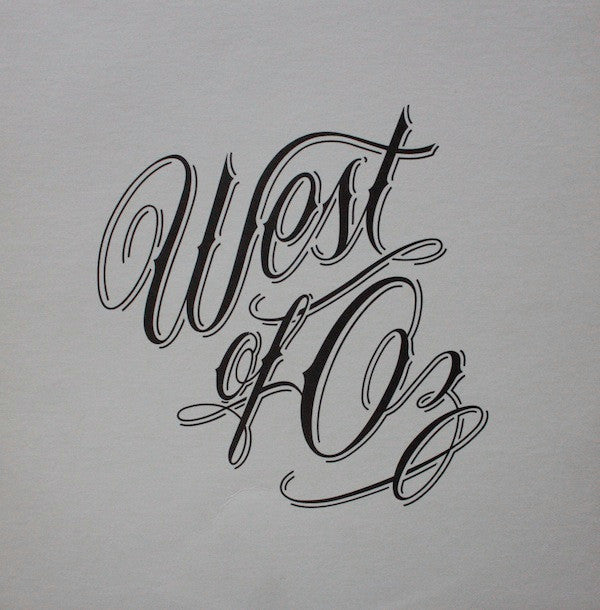 West
of Oz